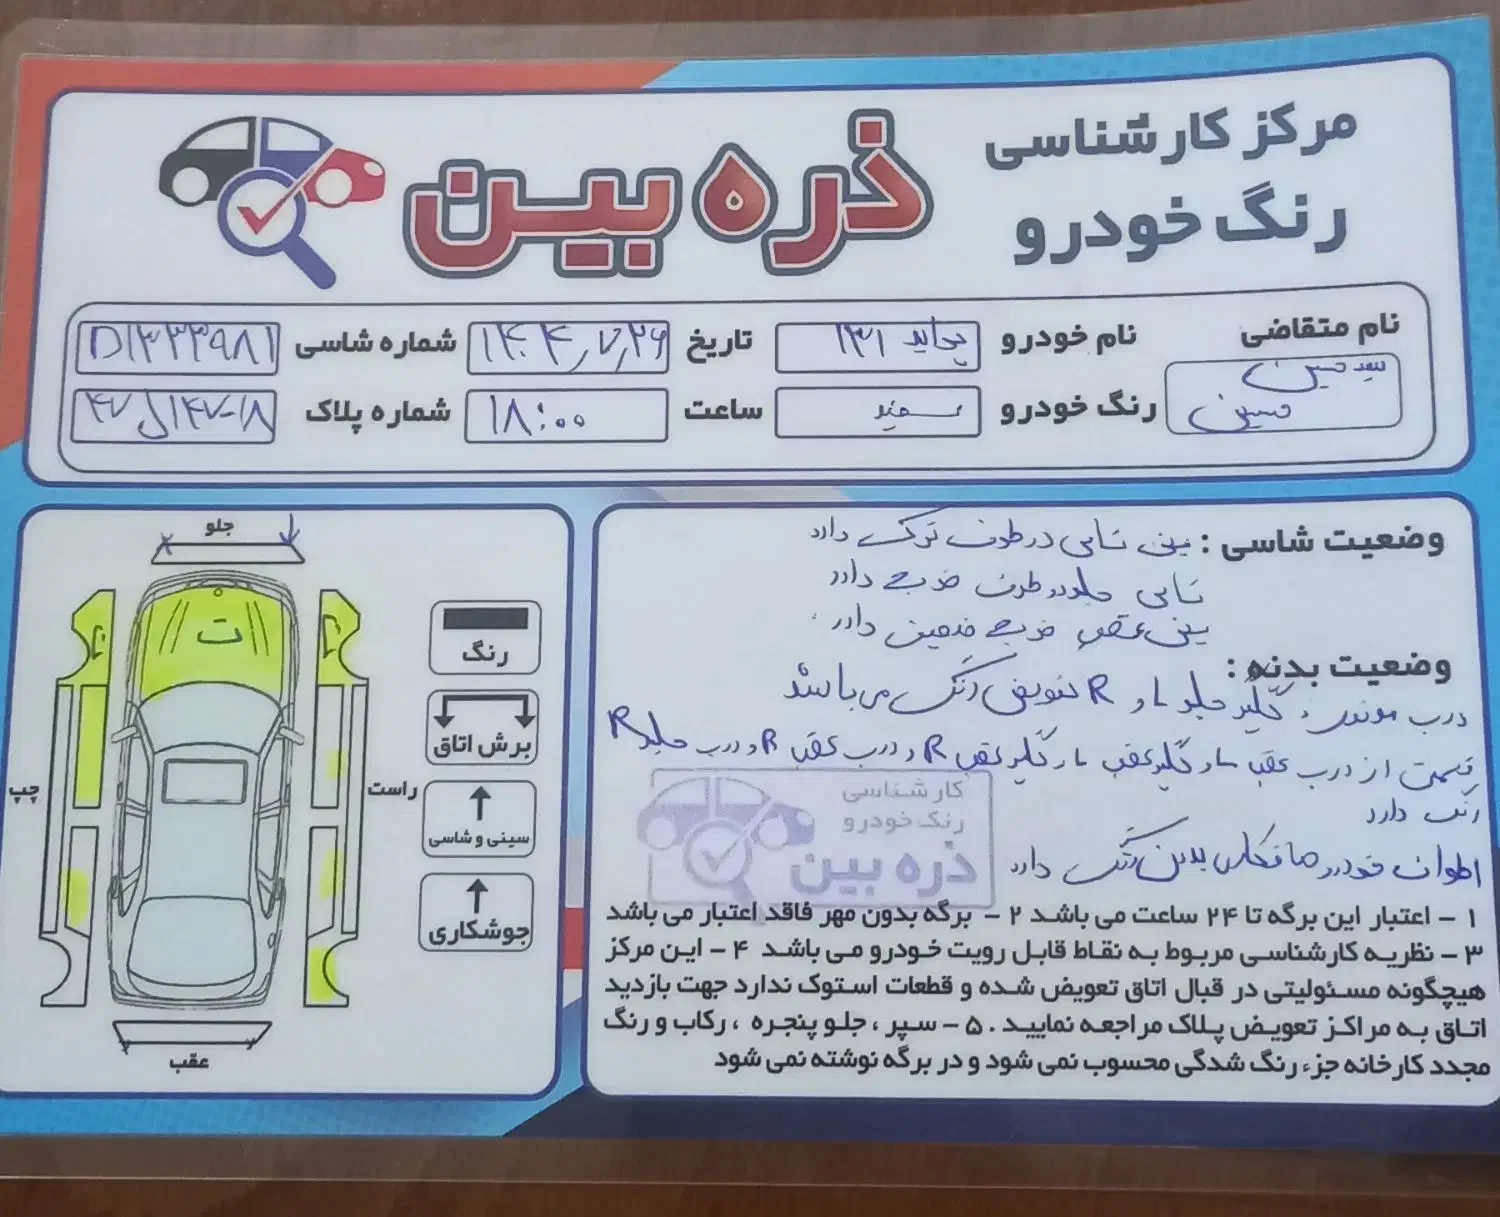 مرکز کارشناسی
رنگ خودرو
ذره بین
نام متقاضی
سید حسین
حسینی
نام خودرو
پراید ۱۳۱
تاریخ
۱۴۰۴٫۷٫۲۶
شماره شاسی
D۱۳۳۳۹۸۱
رنگ خودرو
سفید
ساعت
۱۸:۰۰
شماره پلاک
۴۷ل۱۴۷-۱۸
جلو
ت
ت
ت
چپ
راست
عقب
رنگ
برش اتاق
سینی و شاسی
جوشکاری
وضعیت شاسی : سینی شاسی دو طرف ترک دارد
شاسی جلو دو طرف ضربه دارد
سینی عقب ضربه ضعیف دارد.
وضعیت بدنه :
درب موتور، گلگیر جلو L و R تعویض رنگ می باشد
قسمتی از درب عقب L و گلگیر عقب L و گلگیر عقب R و درب عقب R و درب جلو R
رنگ دارد
اطراف خودرو صافکاری بدون رنگ دارد
کارشناسی
رنگ خودرو
ذره بین
۱ – اعتبار این برگه تا ۲۴ ساعت می باشد ۲ – برگه بدون مهر فاقد اعتبار می باشد
۳ – نظریه کارشناسی مربوط به نقاط قابل رویت خودرو می باشد ۴ – این مرکز
هیچگونه مسئولیتی در قبال اتاق تعویض شده و قطعات استوک ندارد جهت بازدید
اتاق به مراکز تعویض پلاک مراجعه نمایید . ۵ – سپر ، جلو پنجره ، رکاب و رنگ
مجدد کارخانه جزء رنگ شدگی محسوب نمی شود و در برگه نوشته نمی شود